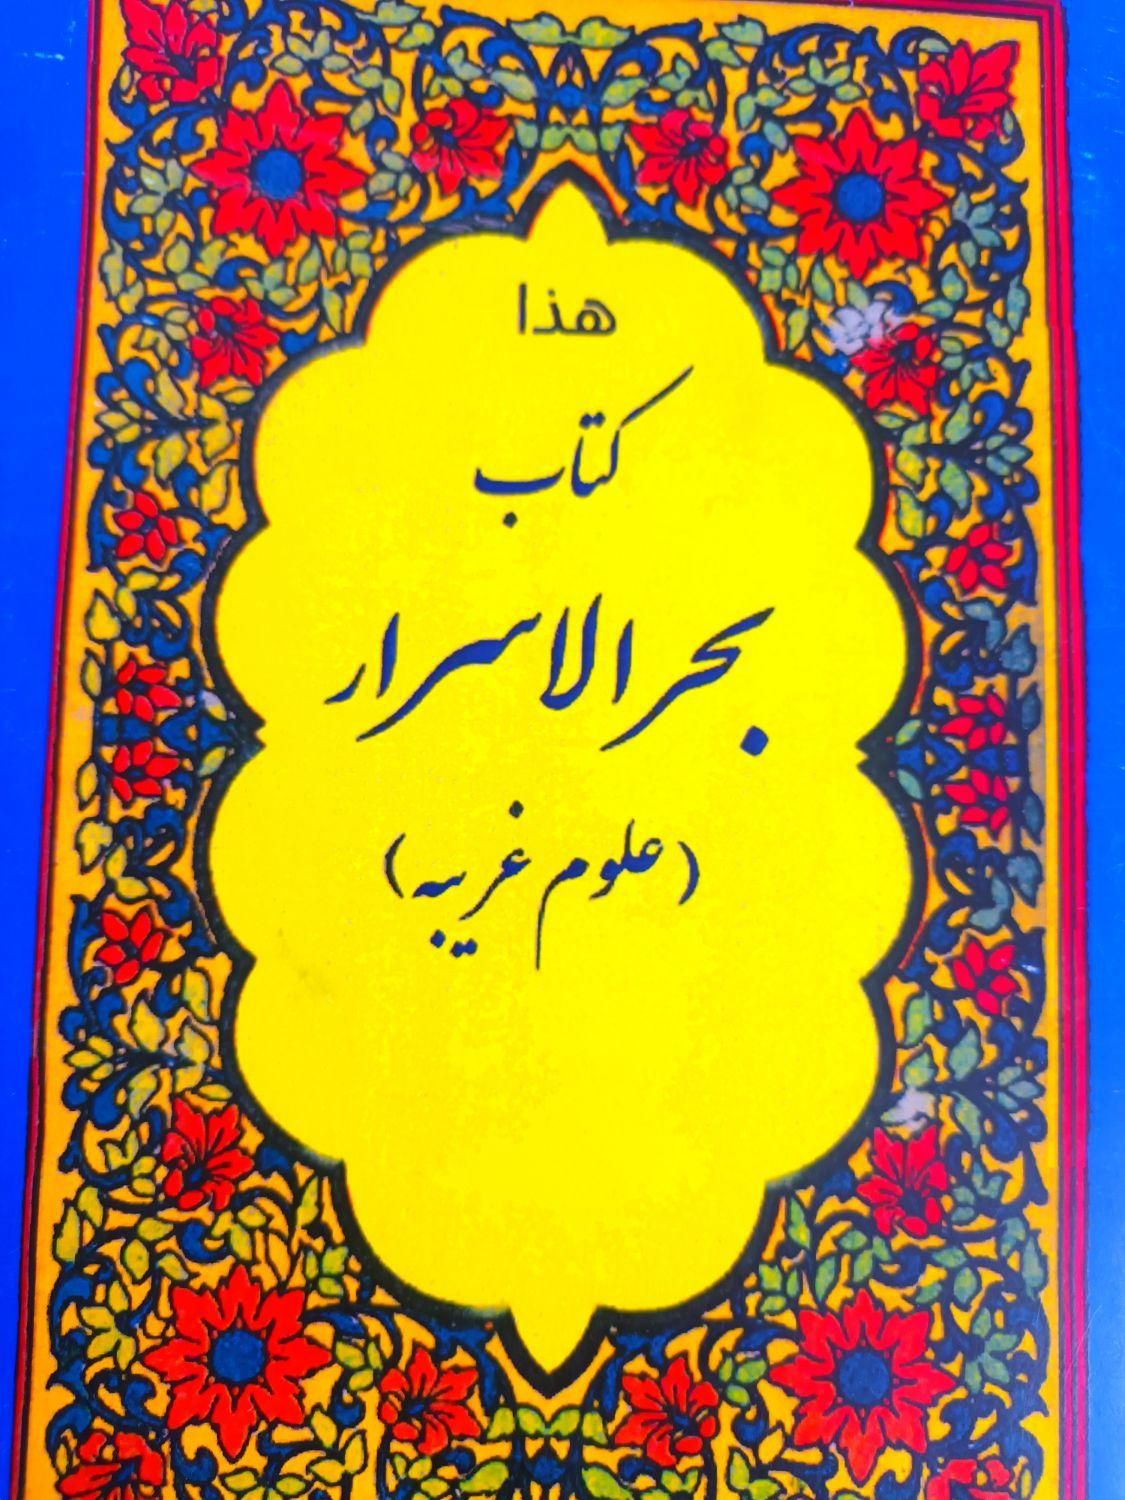 هذا
كتاب
بحر الاسرار
(علوم غريبه)